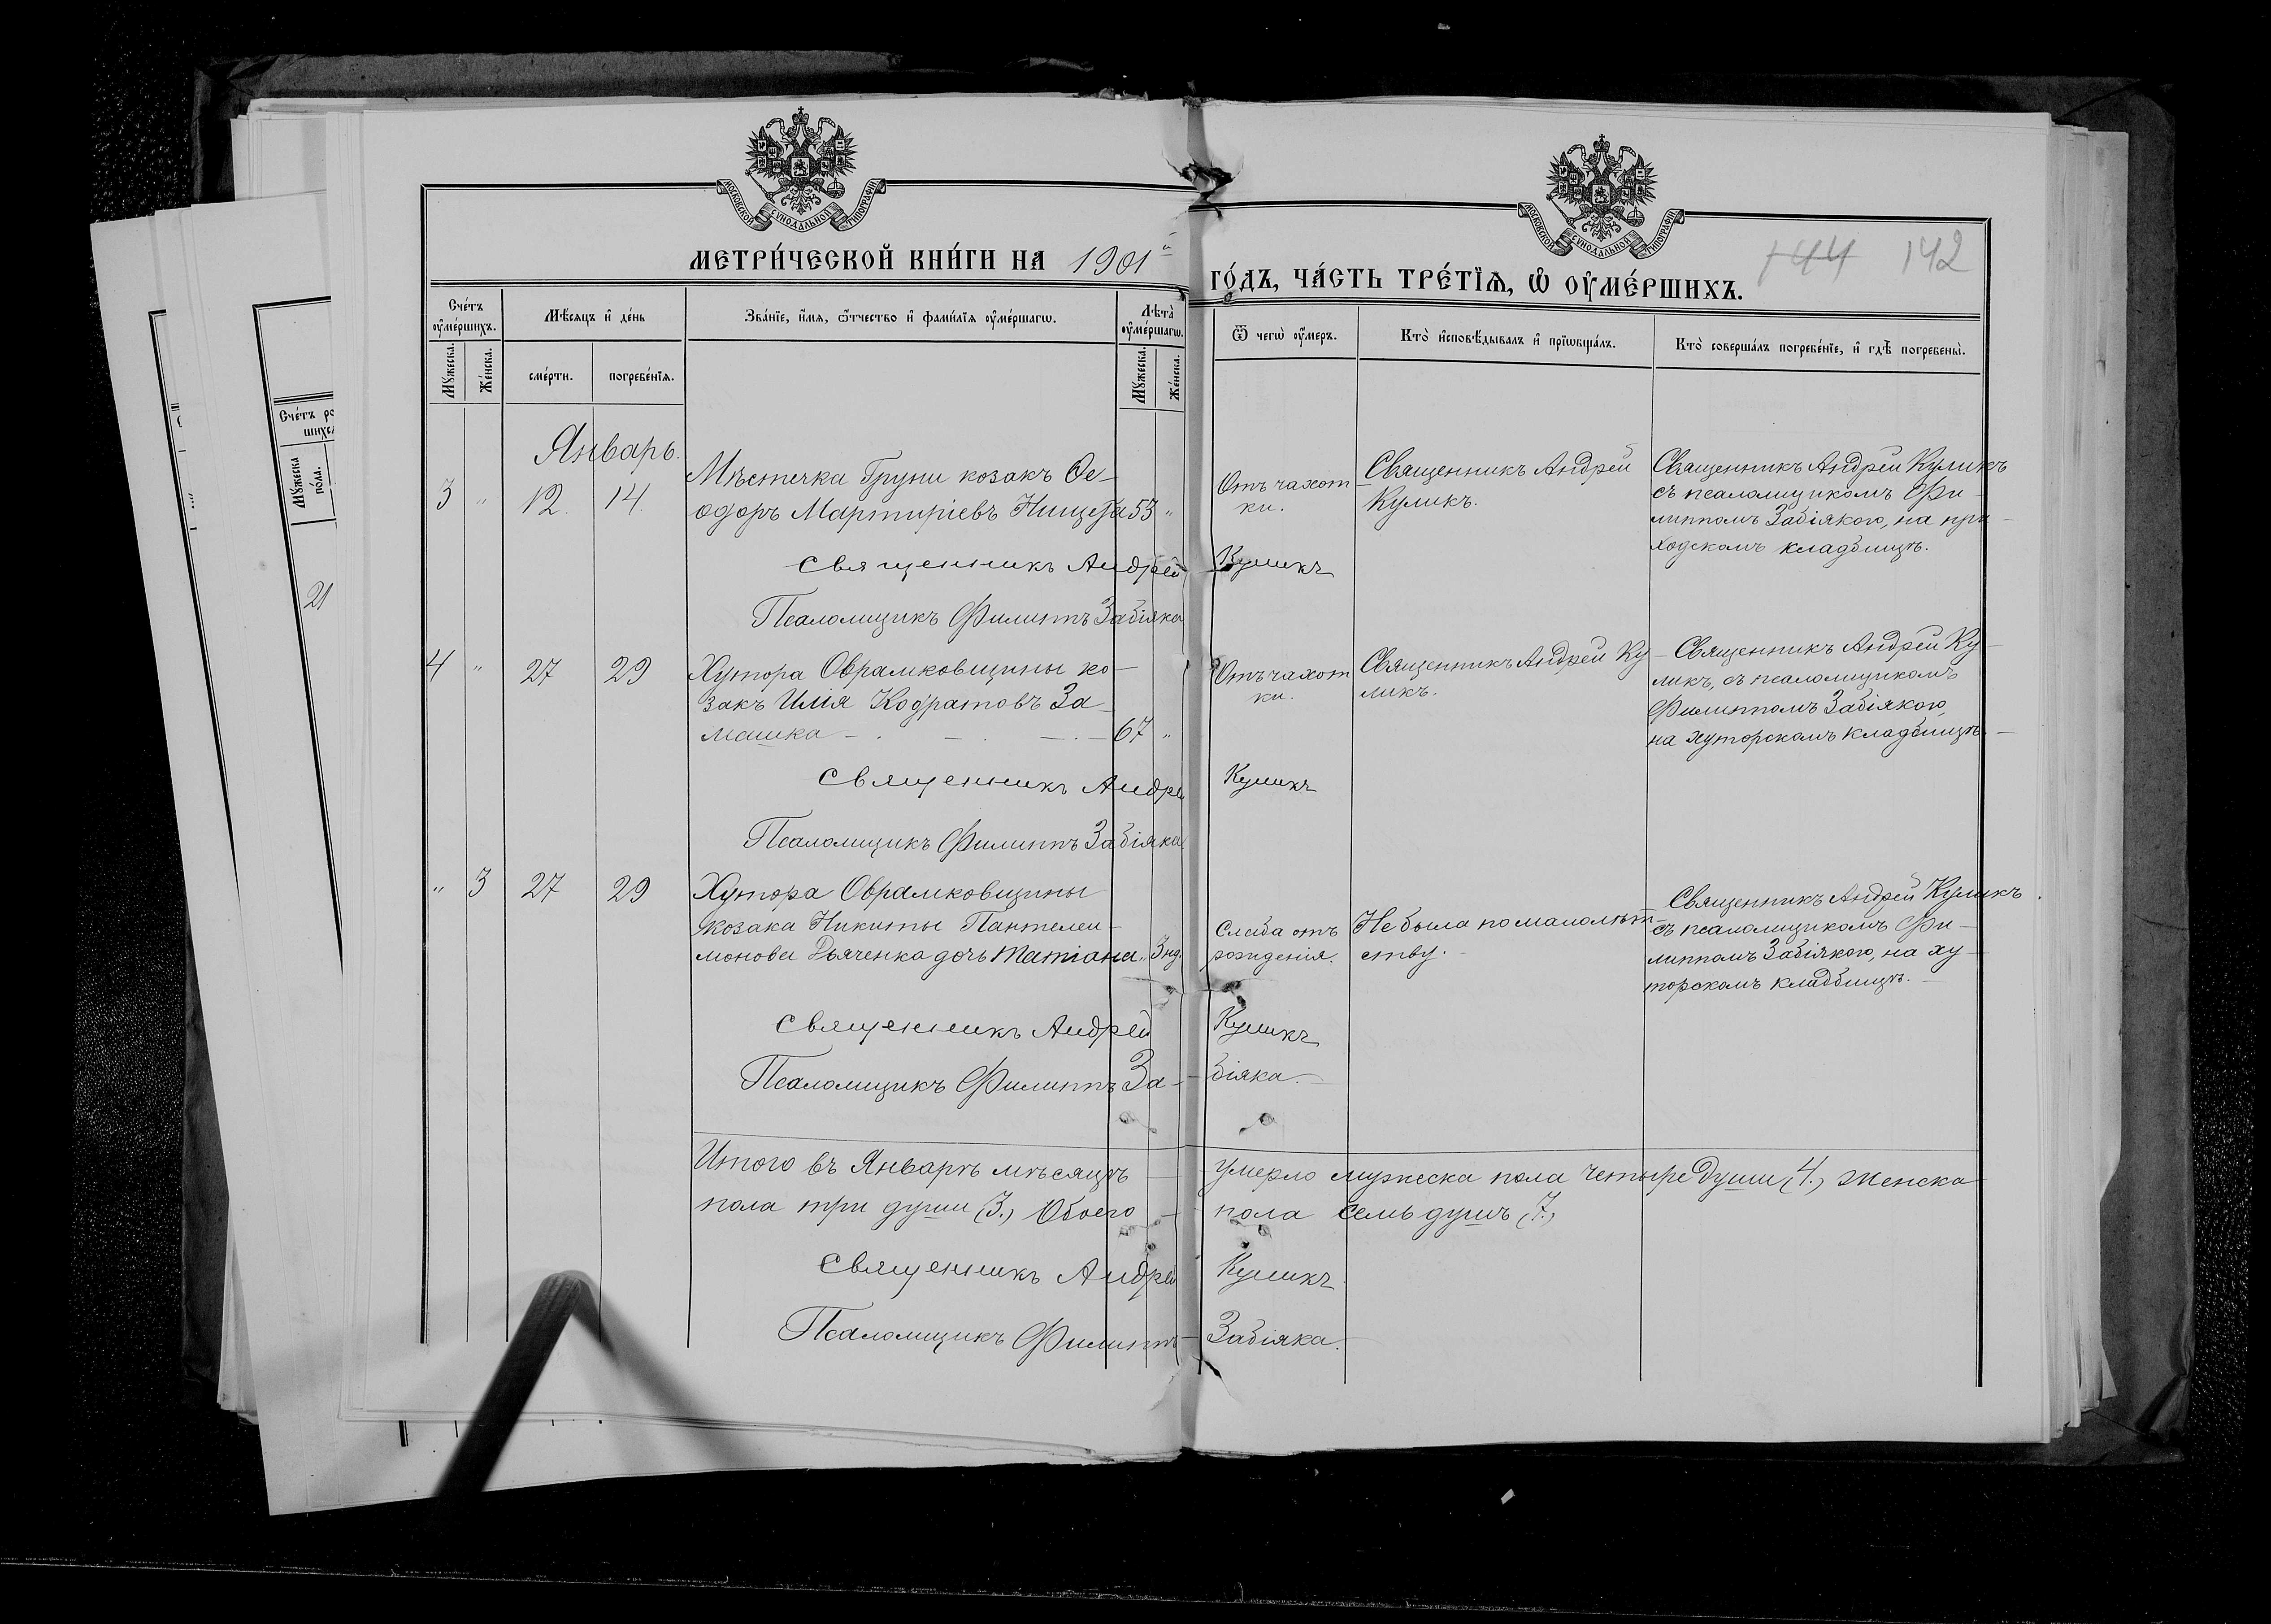 МОСКОВСКОЙ СѴНОДАЛЬНОЙ ТИПОГРАФІИ
МОСКОВСКОЙ СѴНОДАЛЬНОЙ ТИПОГРАФІИ
МЕТРИ́ЧЕСКОЙ КНИ́ГИ НА 1901й
ГО́ДЪ, ЧА́СТЬ ТРЕ́ТЇѦ, Ѽ ОУ҆МЕ́РШИХЪ.
144 142
Сче́тъ оу҆ме́ршихъ.
Мѣ́сяцъ и҆ де́нь
Зва́нїе, и҆́мѧ, ѻ҆́тчество и҆ фами́лїѧ оу҆ме́ршагѡ.
Лѣта̀ оу҆ме́ршагѡ.
Ѿ чегѡ̀ оу҆́меръ.
Кто̀ и҆сповѣ́дывалъ и҆ прїѡбща́лъ.
Кто̀ соверша́лъ погребе́нїе, и҆ гдѣ̀ погребены̀.
Мꙋ́жеска.
Же́нска.
сме́рти.
погребе́нїѧ.
Мꙋ́жеска.
Же́нска.
Сче́тъ ро
шихсѧ
Мꙋ́жеска по́ла.
21
Январь.
3 " 12. 14.
Мѣстечка Груни козакъ Ѳе-
одоръ Мартиріевъ Нищета 53 "
Отъ чахот-
ки.
Священникъ Андрей
Куликъ.
Священникъ Андрей Куликъ
съ псаломщикомъ Фи-
липпомъ Забіякою, на при-
ходскомъ кладбищѣ.
Священникъ Андрей Куликъ
Псаломщикъ Филиппъ Забіяка
4 " 27 29
Хутора Оврамковщины ко-
закъ Илія Кодратовъ За-
машка - . - . - . - 67 "
Отъ чахот
ки.
Священникъ Андрей Ку-
ликъ.
Священникъ Андрей Ку-
ликъ, съ псаломщикомъ
Филиппомъ Забіякою,
на хуторскомъ кладбищѣ. -
Священникъ Андрей Куликъ
Псаломщикъ Филиппъ Забіяка
" 3 27 29
Хутора Оврамковщины
козака Никиты Пантелеи-
монова Дьяченка дочь Татіана " 3 нд.
Слаба отъ
рожденія.
Не была по малолѣт-
ству.
Священникъ Андрей Куликъ
съ псаломщикомъ Фи-
липпомъ Забіякою, на ху-
торскомъ кладбищѣ. -
Священникъ Андрей Куликъ
Псаломщикъ Филиппъ За-біяка.
Итого въ Январѣ мѣсяцѣ - умерло мужеска пола четыре души (4.), женска
пола три души (3.) Обоего - пола семь душъ (7.)
Священникъ Андрей Куликъ
Псаломщикъ Филиппъ - Забіяка.